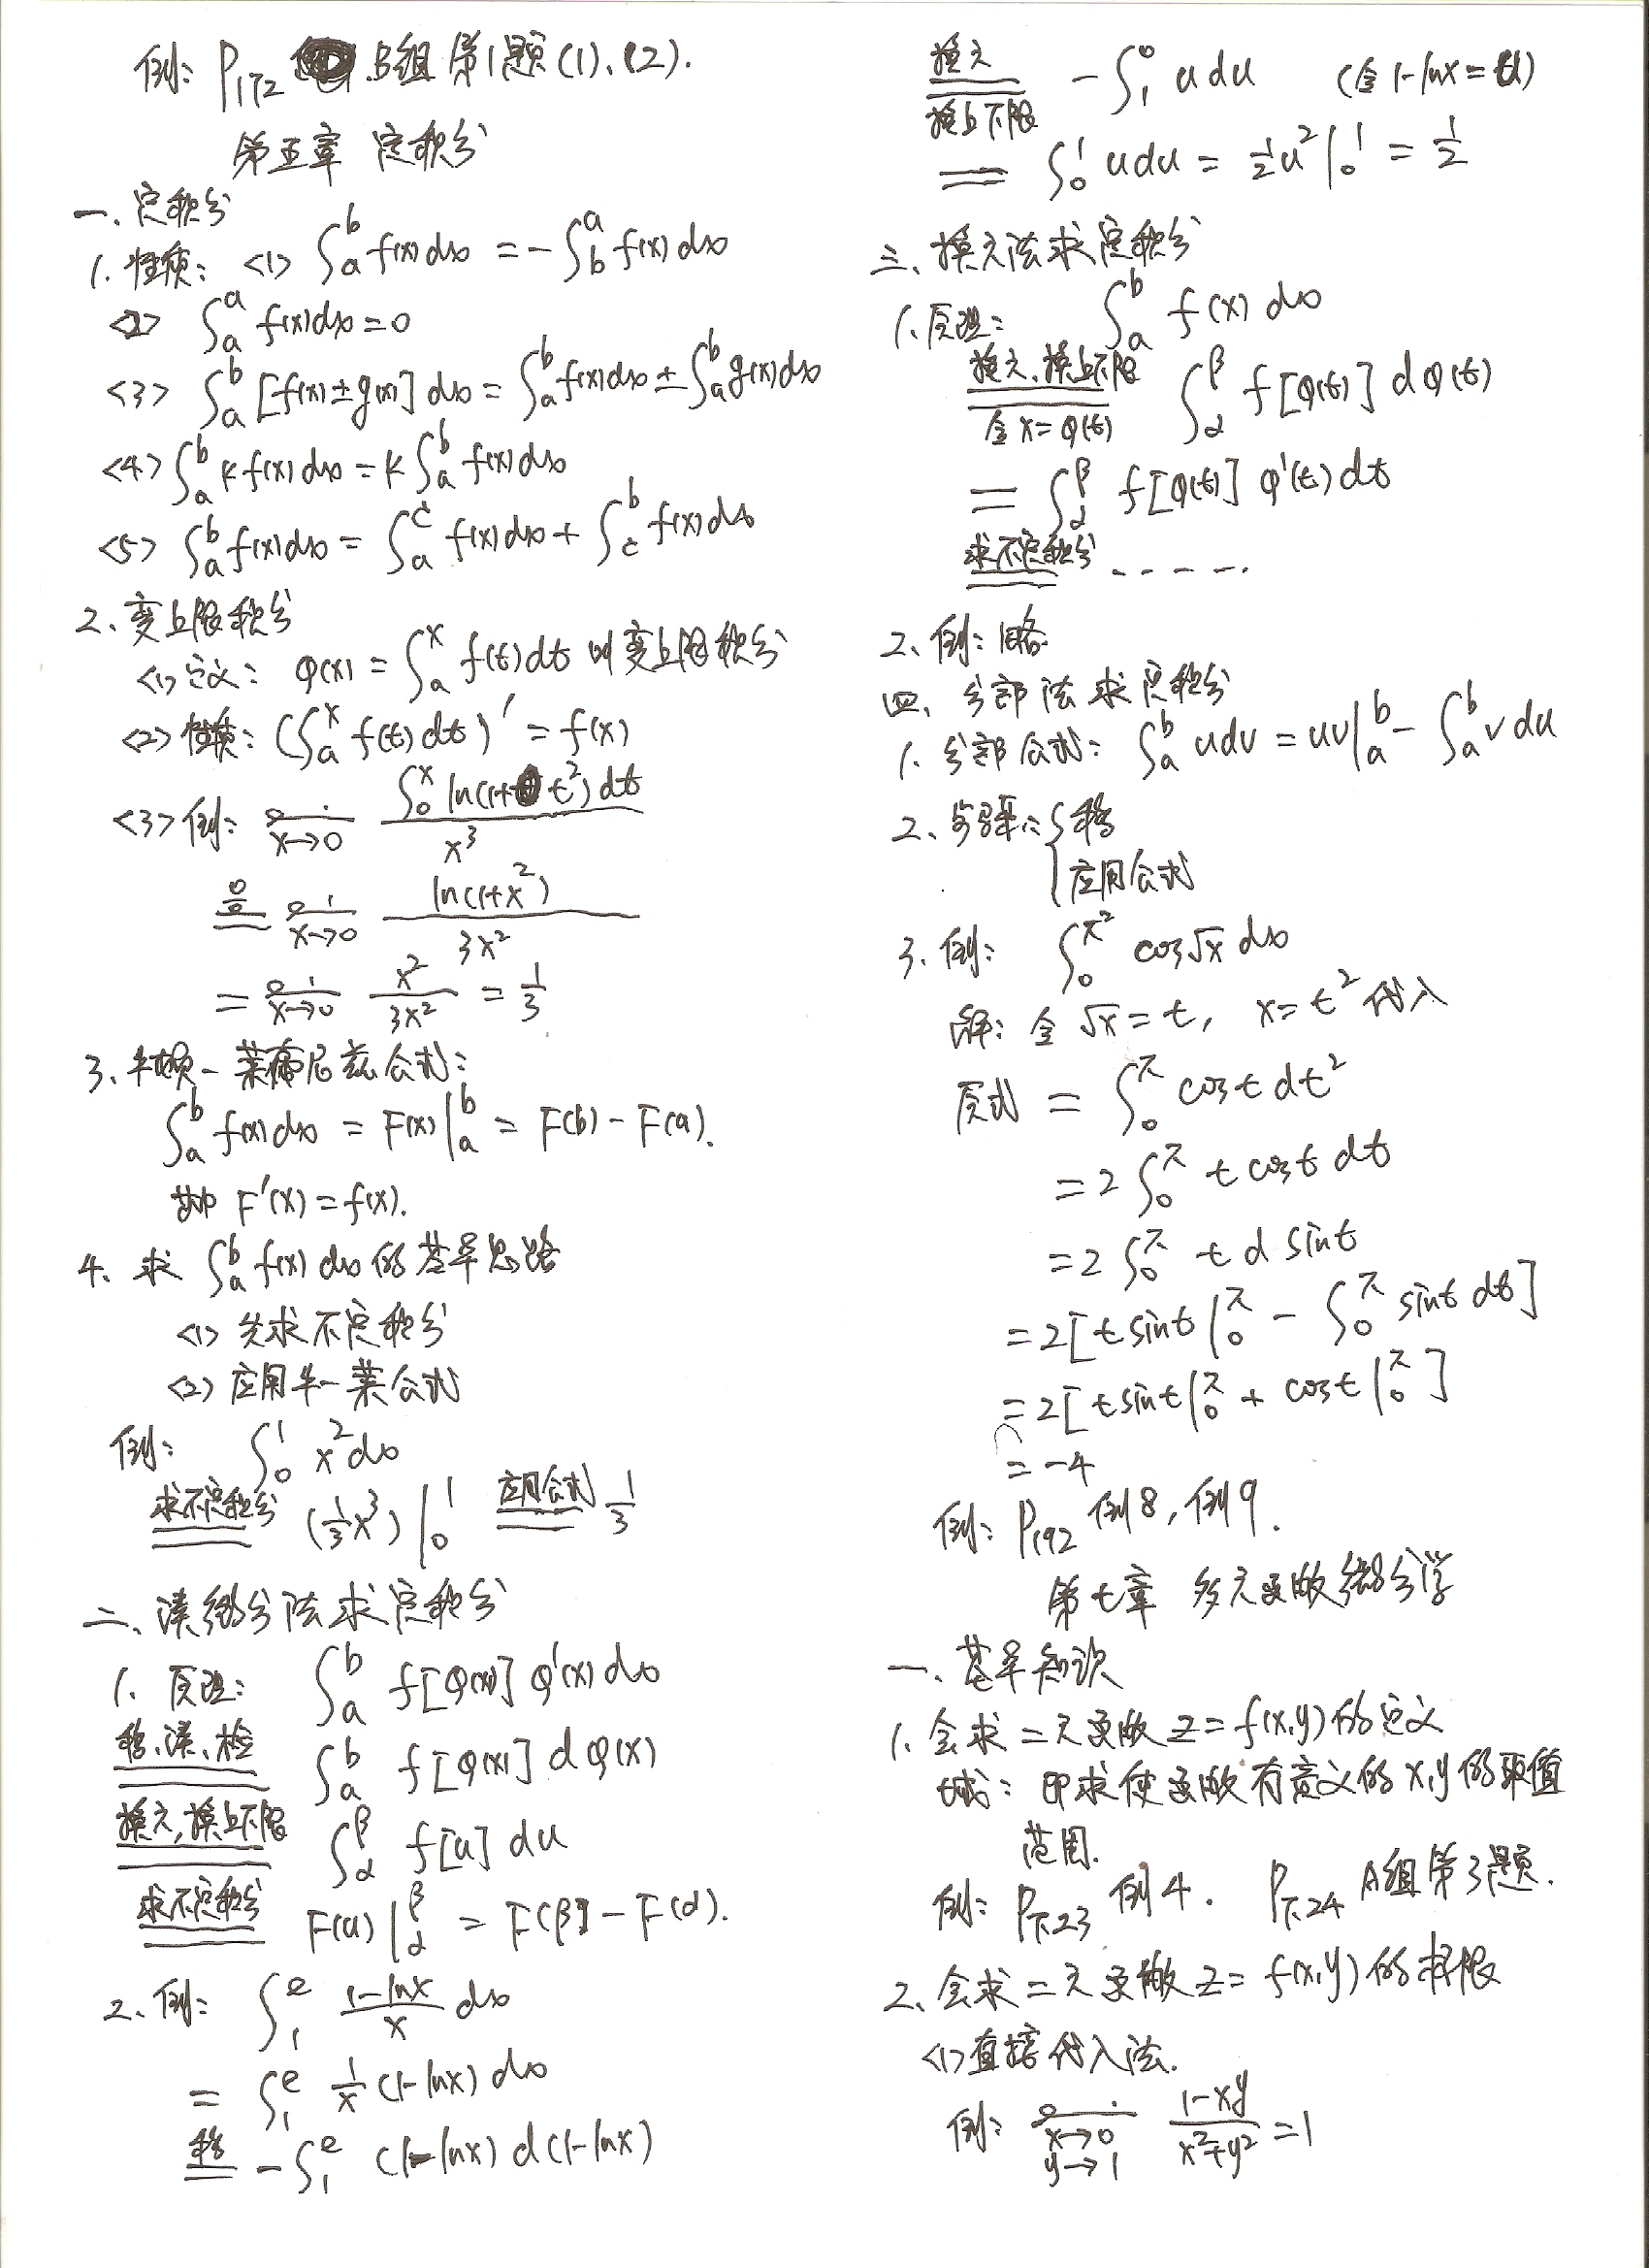 例: P172 B组第1题(1)、(2).
第五章 定积分
一、定积分
1. 性质: <1> ∫_a^b f(x)dx = -∫_b^a f(x)dx
<2> ∫_a^a f(x)dx = 0
<3> ∫_a^b [f(x)±g(x)]dx = ∫_a^b f(x)dx ± ∫_a^b g(x)dx
<4> ∫_a^b kf(x)dx = k∫_a^b f(x)dx
<5> ∫_a^b f(x)dx = ∫_a^c f(x)dx + ∫_c^b f(x)dx
2、变上限积分
<1> 定义: φ(x) = ∫_a^x f(t)dt 叫变上限积分
<2> 性质: (∫_a^x f(t)dt)' = f(x)
<3> 例: lim_{x→0} ∫_0^x ln(1+t²)dt / x³
0/0 = lim_{x→0} ln(1+x²) / 3x²
= lim_{x→0} x²/3x² = 1/3
3、牛顿-莱布尼兹公式:
∫_a^b f(x)dx = F(x)|_a^b = F(b)-F(a).
其中 F'(x)=f(x).
4、求 ∫_a^b f(x)dx 的基本思路
<1> 先求不定积分
<2> 应用牛-莱公式
例: ∫_0^1 x²dx
求不定积分 (1/3 x³)|_0^1 应用公式 1/3
二、凑微分法求定积分
1. 原理: ∫_a^b f[φ(x)]φ'(x)dx
移、凑、检 ∫_a^b f[φ(x)]dφ(x)
换元,换上下限 ∫_α^β f[u]du
求不定积分 F(u)|_α^β = F(β)-F(α).
2、例: ∫_1^e (1-lnx)/x dx
= ∫_1^e 1/x (1-lnx)dx
移 -∫_1^e (1-lnx)d(1-lnx)
换元 换上下限 -∫_1^0 udu (令1-lnx=u)
= ∫_0^1 udu = 1/2 u²|_0^1 = 1/2
三、换元法求定积分
1. 原理: ∫_a^b f(x)dx
换元、换上下限 令x=φ(t) ∫_α^β f[φ(t)]dφ(t)
= ∫_α^β f[φ(t)]φ'(t)dt
求不定积分 -----.
2、例: 略
四、分部法求定积分
1. 分部公式: ∫_a^b udv = uv|_a^b - ∫_a^b vdu
2、步骤: { 移
应用公式
3、例: ∫_0^{π²} cos√x dx
解: 令√x=t, x=t² 代入
原式 = ∫_0^π cost dt²
= 2∫_0^π t cost dt
= 2∫_0^π t d sint
= 2[t sint|_0^π - ∫_0^π sint dt]
= 2[t sint|_0^π + cost|_0^π]
= -4
例: P192 例8, 例9.
第七章 多元函数微分学
一、基本知识
1. 会求二元函数z=f(x,y)的定义
域: 即求使函数有意义的x,y的取值
范围.
例: P下23 例4. P下24 A组第3题.
2、会求二元函数z=f(x,y)的极限
<1> 直接代入法.
例: lim_{x→0 y→1} (1-xy)/(x²+y²) = 1